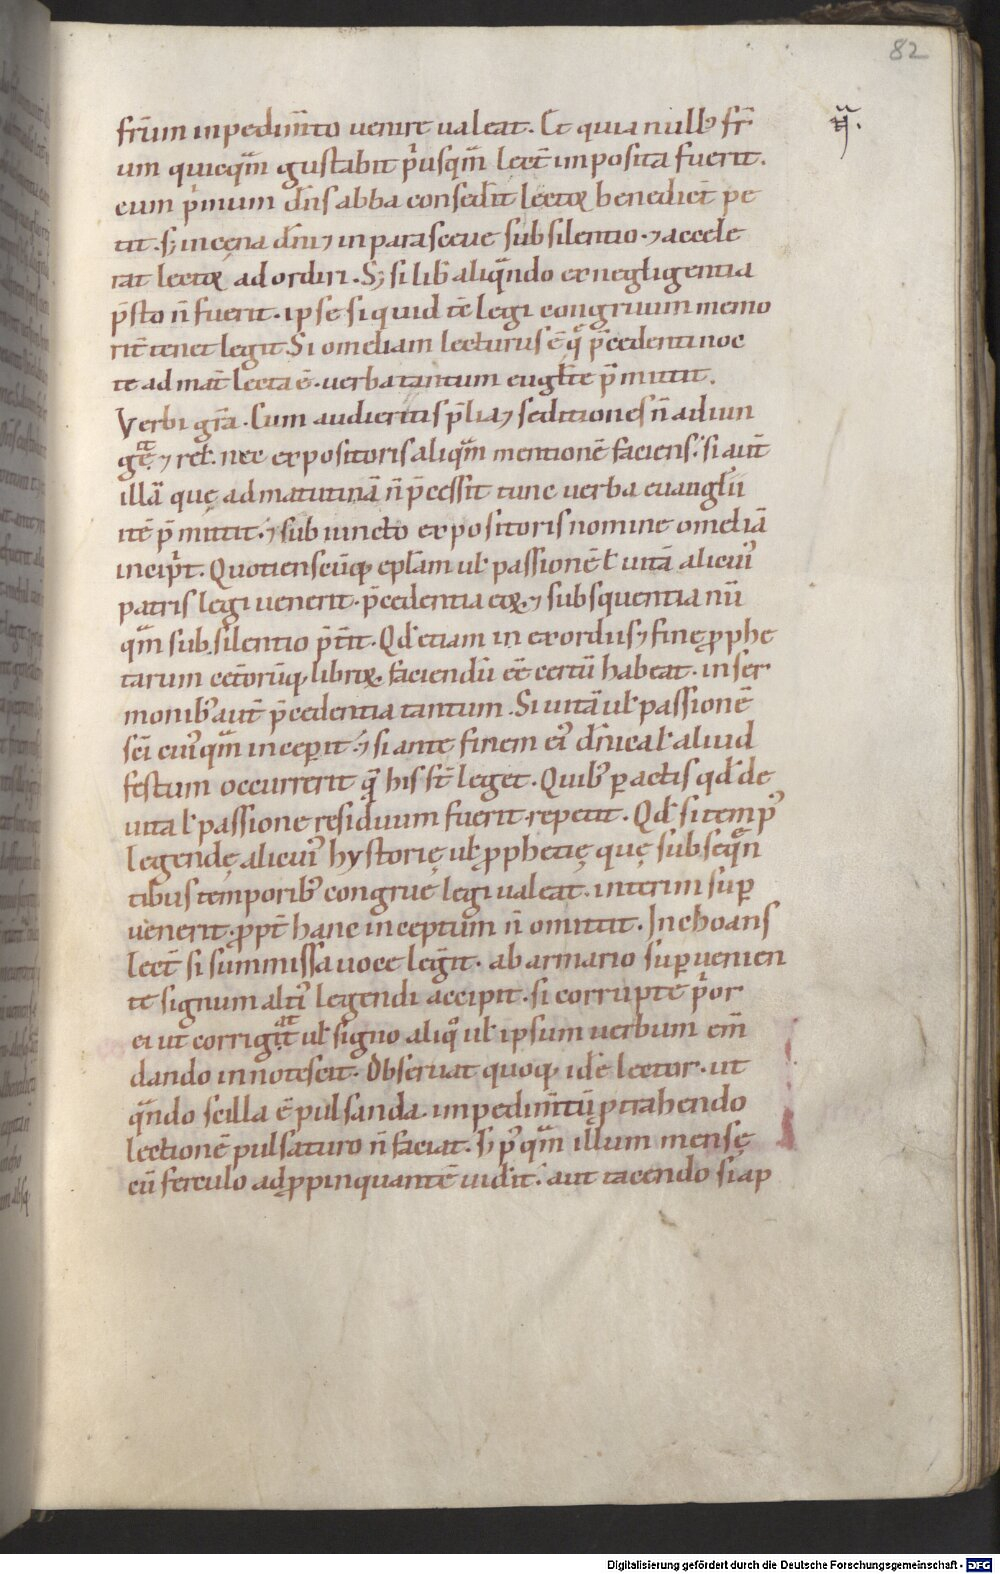 82
fr̄um inpedim̄to uenire ualeat. Et quia null᷒ fr̄
um quicqᷓm gustabit p͛usqᷓm lect̄ imposita fuerit.
cum p͛mum dn̄s abba consedit̄ lectoꝝ benedict̄ pe
tit. sꝫ in cena dn̄i ⁊ in parasceue sub silentio. ⁊ accele
rat lectoꝝ ad ordiri. Sꝫ si lib̄ aliqᷓndo ex negligentia
p̄sto n̄ fuerit. ipse si quid tē legi congruum memo
rit̄ tenet legit. Si omeliam lecturus ē q̄ p̄cedenti noc
te ad mat̄ lecta ē. uerba tantum eugl̄ie p̄mittit.
Verbi gr̄a. Cum audieritis p̄lia ⁊ seditiones n̄ adiun
gat ⁊ rel̄. nec expositoris aliqᷓm mentionē faciens. si aut̄
illā quę ad matutinā n̄ p̄cessit tunc uerba euangl̄ii
itē p̄mittit. ⁊ subiuncto expositoris nomine omeliā
incip͛t. Quotienscūqꝫ epl̄am ul̄ passionē l̄ uitā alicui᷒
patris legi uenerit. p̄cedentia eoꝝ. ⁊ subsquentia nū
qᷓm sub silentio p̄t̄it. Qd̄ etiam in exordiis ⁊ fine ꝓphe
tarum cet̄orūqꝫ libroꝝ. faciendū eē certū habeat. in ser
monib᷒ aut̄ p̄cedentia tantum. Si uitā ul̄ passionē
sc̄i cui᷒qᷓm inceꝑit. ⁊ si ante finem ei᷒ dn̄ica l̄ aliud
festum occurrerit qᷓ his st̄ leget. Quib᷒ ꝑactis qd̄ de
uita l̄ passione residuum fuerit repetit. Qd̄ si temp᷒
legendę alicui᷒ hystorię ul̄ ꝓphetię quę subseqᷓn
tibus temporib᷒ congruē legi ualeat. interim suꝑ
uenerit. ꝓpt̄ hanc inceptum n̄ omittit. Inchoans
lect̄ si summissa uoce legit̄. ab armario suꝑuenien
te signum alti᷒ legendi accipit. si corrupte p͛or
ei ut corrigat ul̄ signo aliqͦ ul̄ ipsum uerbum em̄
dando innotescit. Obseruat quoqꝫ idē lector. ut
qᷓndo scilla ē pulsanda. impedim̄tū ꝓtrahendo
lectionē pulsaturo n̄ faciat. Sꝫ p᷒qᷓm illum mensę
cū ferculo adꝓpinquantē uidit̄. aut tacendo si ap
Digitalisierung gefördert durch die Deutsche Forschungsgemeinschaft - DFG